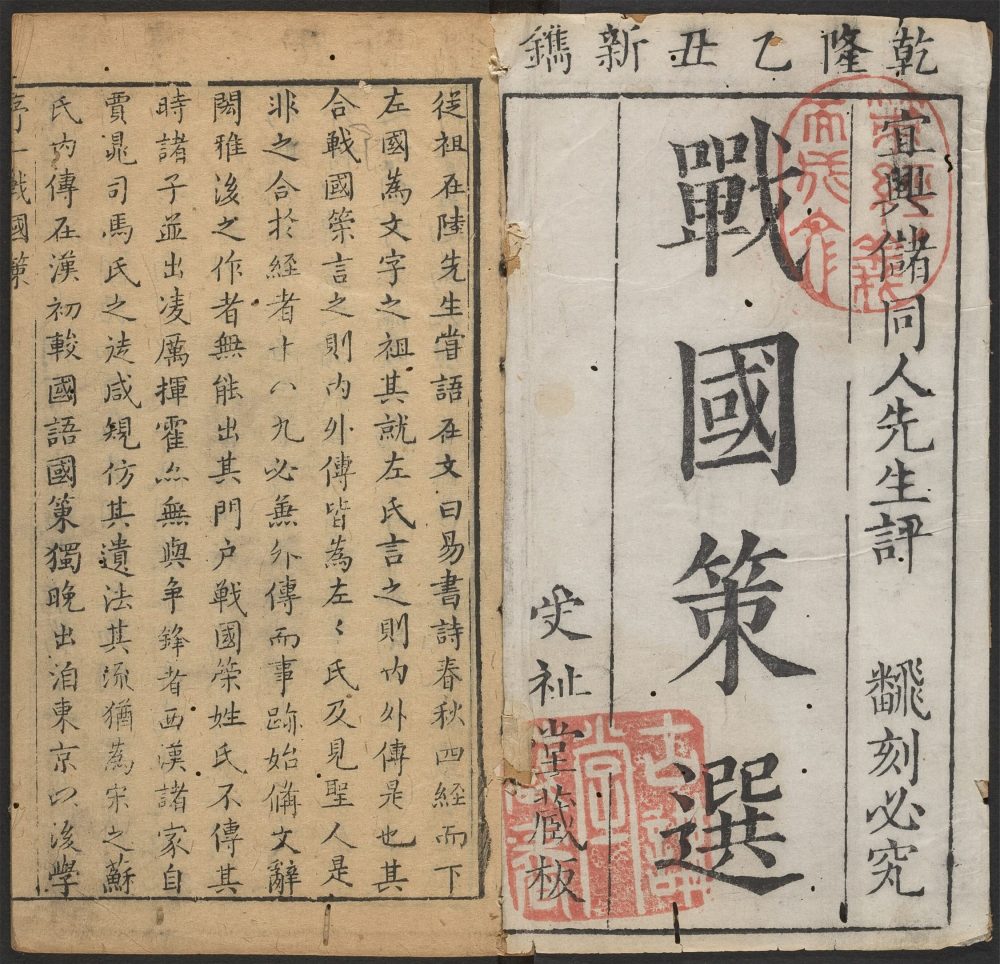 乾隆乙丑新鐫
宜興儲同人先生評 飜刻必究
戰國策選
受祉堂藏板
從祖在陸先生嘗語在文曰易書詩春秋四經而下
左國為文字之祖其就左氏言之則內外傳是也其
合戰國策言之則內外傳皆為左〻氏及見聖人是
非之合於經者十八九必兼外傳而事跡始備文辭
閎雅後之作者無能出其門户戰國策姓氏不傳其
時諸子並出凌厲揮霍無與爭鋒者西漢諸家自
賈鼂司馬氏之徒咸規仿其遺法其流猶為宋之蘇
氏內傳在漢初較國語國策獨晚出洎東京以後學
序一戰國策